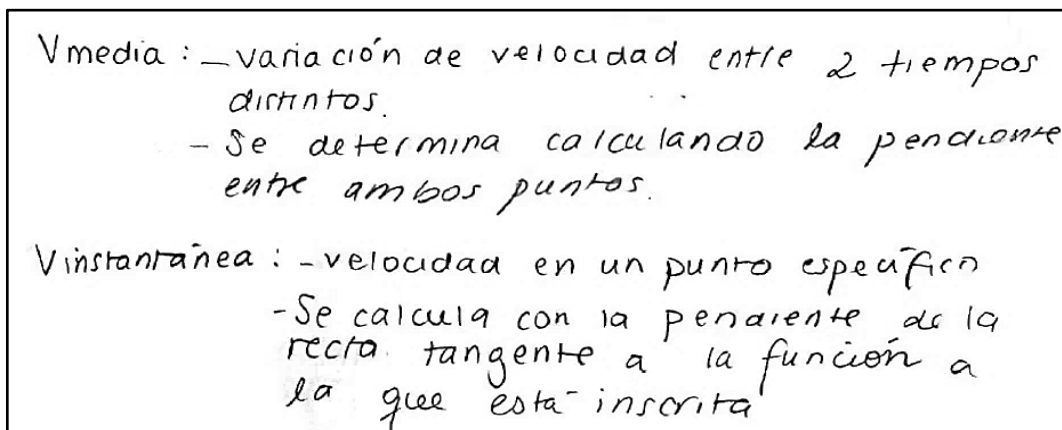 Vmedia: - variación de velocidad entre 2 tiempos
distintos.
- Se determina calculando la pendiente
entre ambos puntos.
Vinstantánea: - velocidad en un punto específico
- Se calcula con la pendiente de la
recta tangente a la función a
la que está inscrita